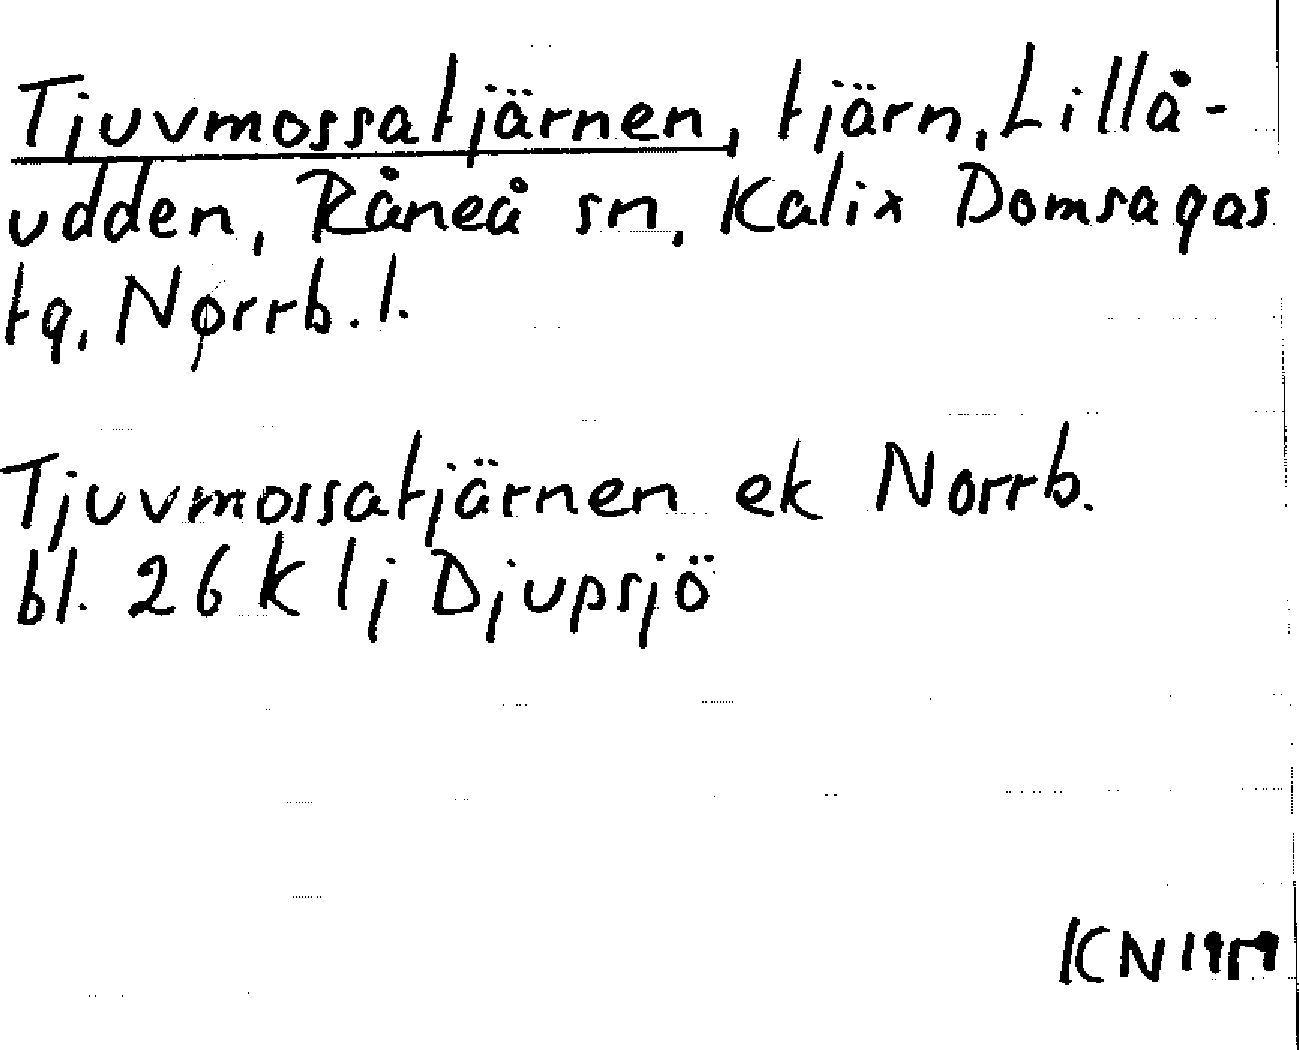 Tjuvmossatjärnen, tjärn, Lillå-
udden, Råneå sn, Kalix Domsagas
tg, Norrb. l.
Tjuvmossatjärnen ek Norrb.
bl. 26 K lj Djupsjö
KN